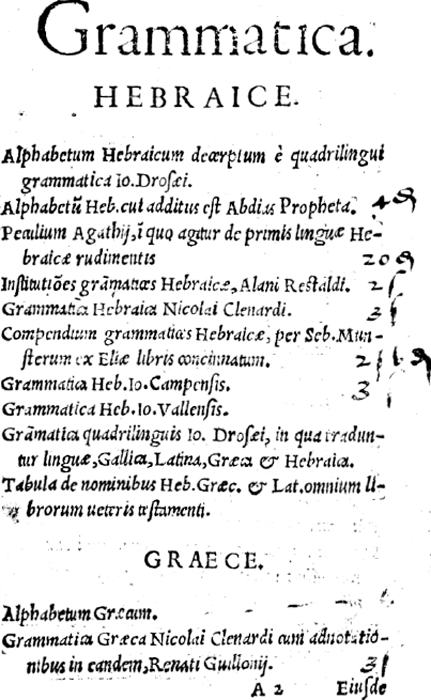 Grammatica.
HEBRAICE.
Alphabetum Hebraicum decerptum è quadrilingui
grammatica Io. Drosæi.
Alphabetũ Heb. cui additus est Abdias Propheta. 4 ₰
Peculium Agathij, ĩ quo agitur de primis linguæ He-
braicæ rudimentis 20 ₰
Institutiões grãmaticæ Hebraicæ, Alani Restaldi. 2 ſ
Grammatica Hebraica Nicolai Clenardi. 3 ſ
Compendium grammatices Hebraicæ, per Seb. Mun-
sterum ex Eliæ libris concinnatum. 2 ſ 6 ₰
Grammatica Heb. Io. Campensis. 3 ſ
Grammatica Heb. Io. Vallensis.
Grãmatica quadrilinguis Io. Drosæi, in qua tradun-
tur linguæ, Gallica, Latina, Græca & Hebraica.
Tabula de nominibus Heb. Græc. & Lat. omnium li-
brorum ueteris testamenti.
GRAECE.
Alphabetum Græcum.
Grammatica Græca Nicolai Clenardi cum adnotatio-
nibus in eandem, Renati Guillonij. 3 ſ
A 2 Eiusde